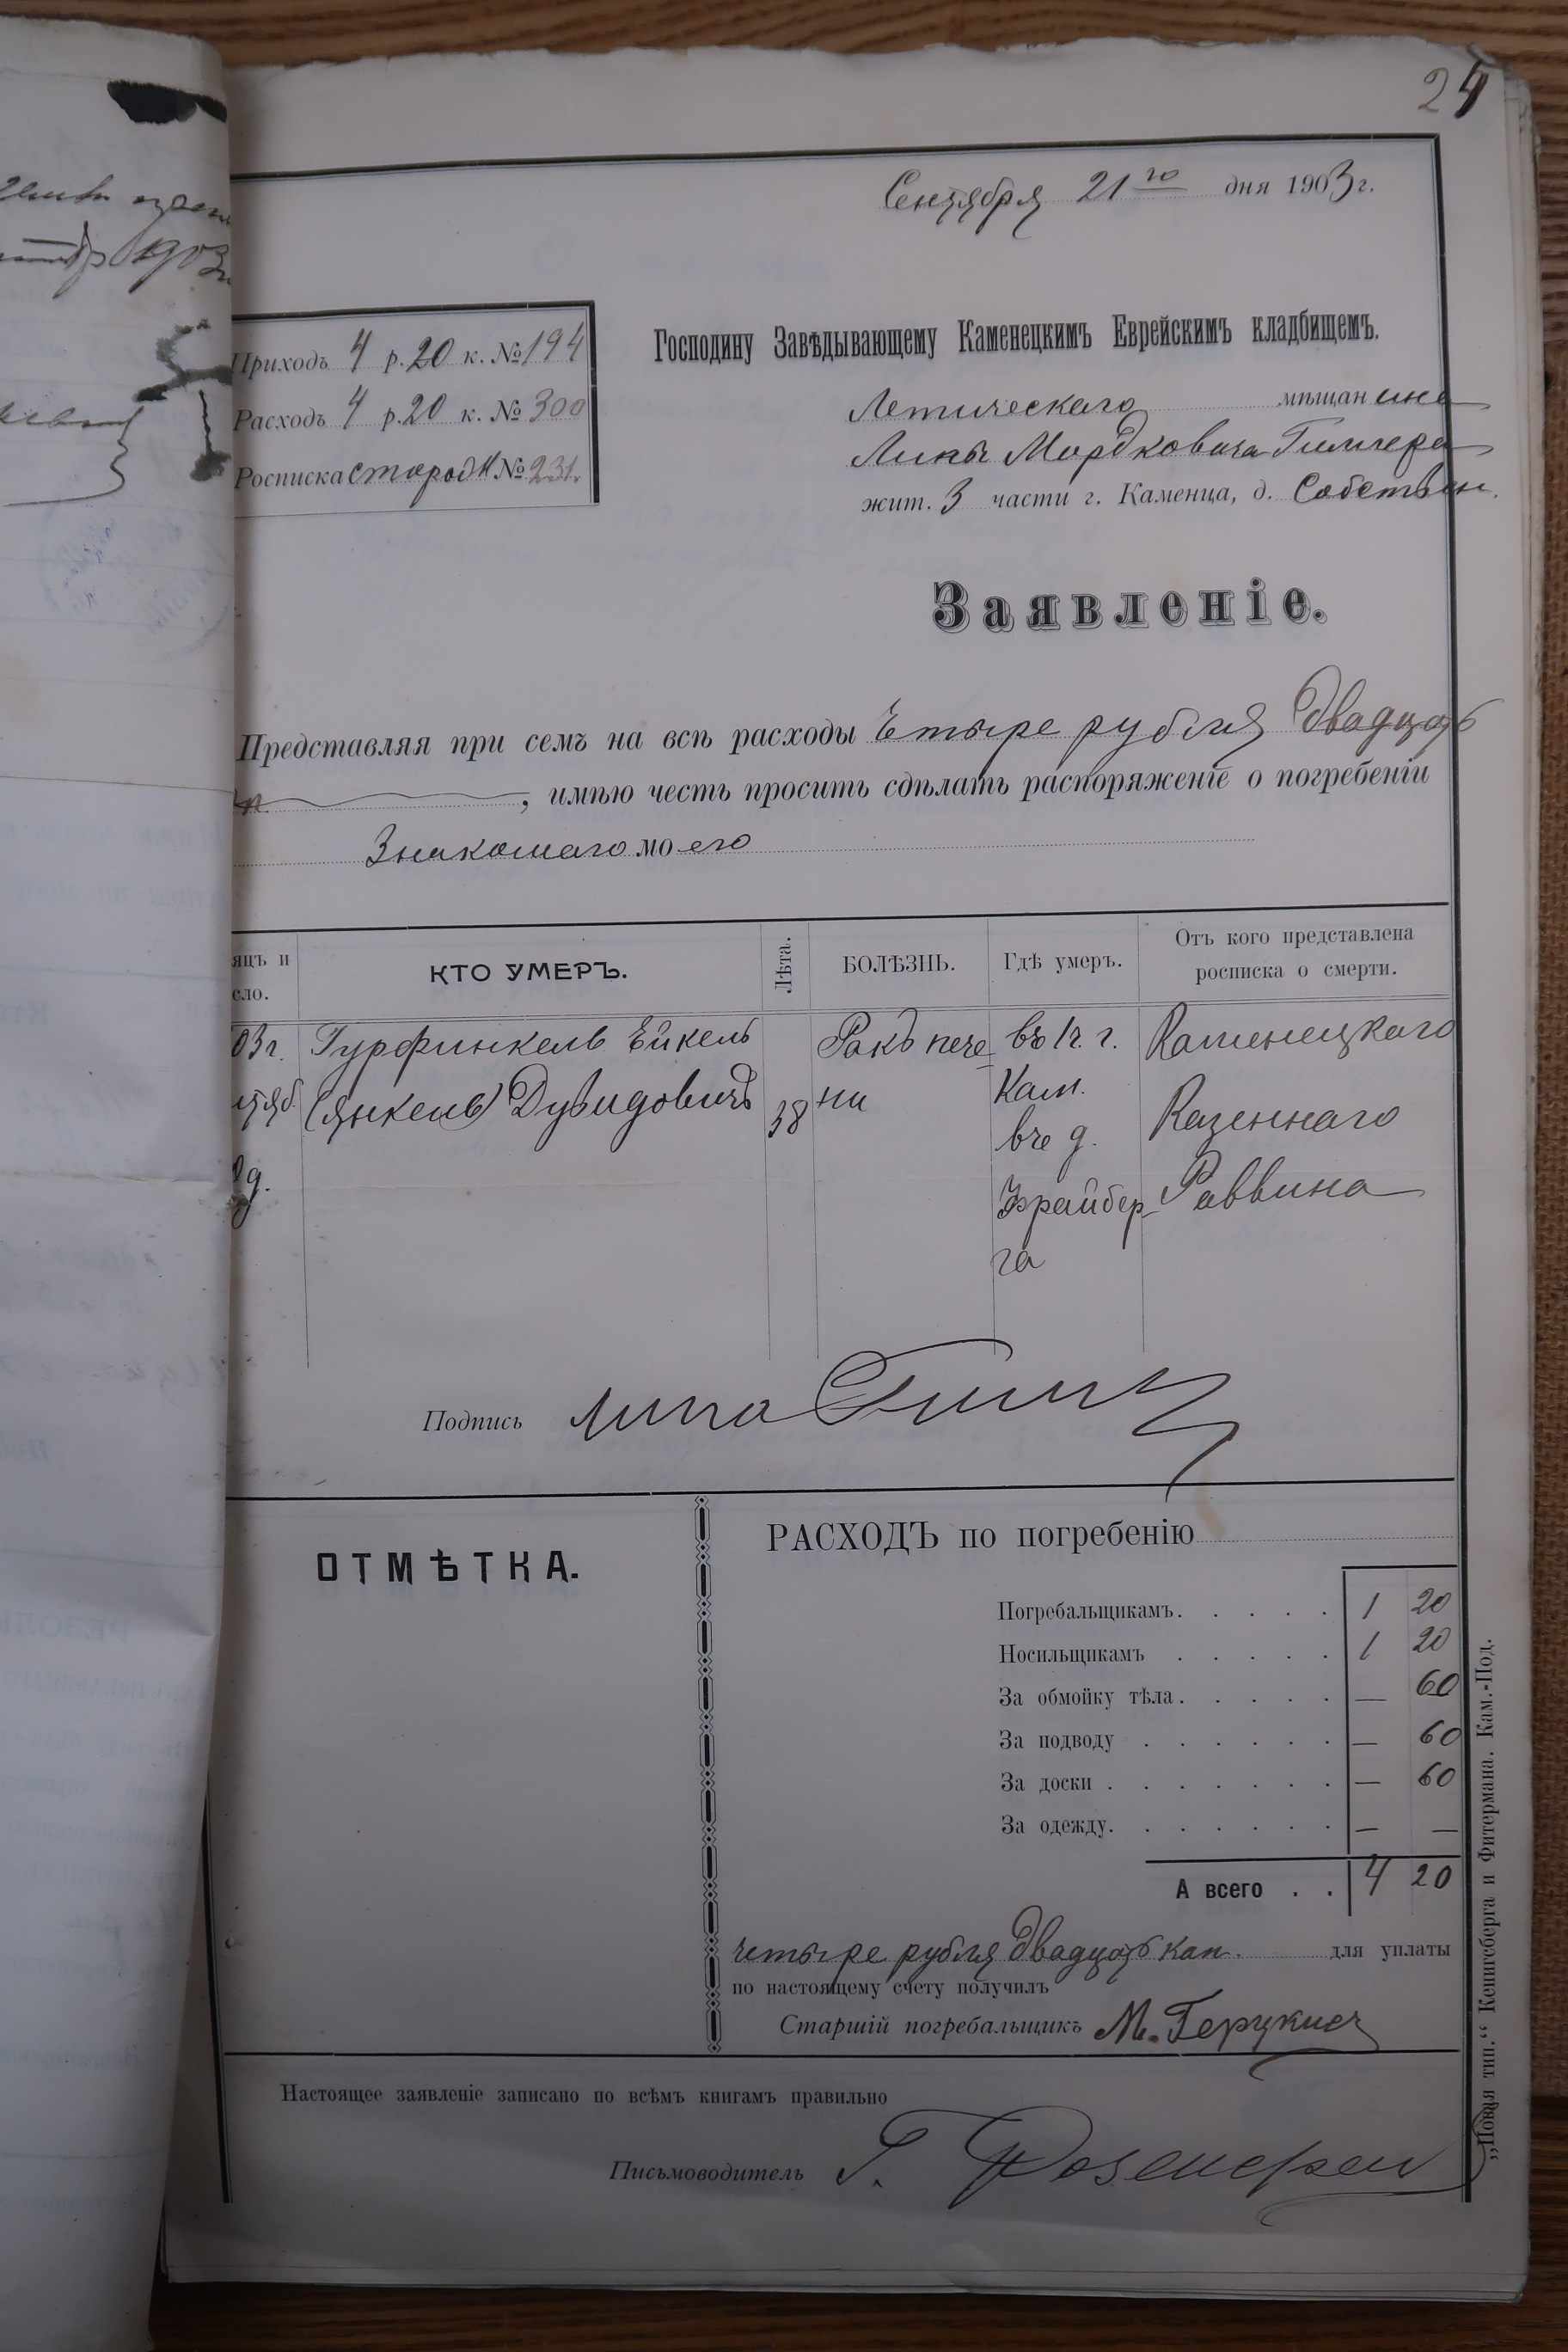 24
Сентября 21го дня 1903 г.
Приходъ 4 р. 20 к. № 194
Расходъ 4 р. 20 к. № 300
Росписка сторожа № 231.
Господину Завѣдывающему Каменецкимъ Еврейскимъ кладбищемъ.
Летическаго мѣщанина
Липы Мордковича
жит. 3 части г. Каменца, д. Собствен.
Заявленіе.
Представляя при семъ на всѣ расходы Четыре рубля двадцать
к., имѣю честь просить сдѣлать распоряженіе о погребеніи
Знакомаго моего
яцъ и
сло.
КТО УМЕРЪ.
Лѣта.
БОЛѢЗНЬ.
Гдѣ умеръ.
Отъ кого представлена
росписка о смерти.
03 г. Гурфинкель Ейкель Ракъ пече- въ 1 ч. г. Каменецкаго
тяб. (Янкель) Дувидовичъ 38 ни Кам. Казеннаго
въ д.
д. Фрайбер- Раввина
га
Подпись Липа
ОТМѢТКА.
РАСХОДЪ по погребенію
Погребальщикамъ. 1 20
Носильщикамъ 1 20
За обмойку тѣла. — 60
За подводу — 60
За доски — 60
За одежду. — —
А всего 4 20
четыре рубля двадцать коп. для уплаты
по настоящему счету получилъ
Старшій погребальщикъ М.
Настоящее заявленіе записано по всѣмъ книгамъ правильно
Письмоводитель Г.
„Новая тип.“ Кенигсберга и Фитермана. Кам.-Под.